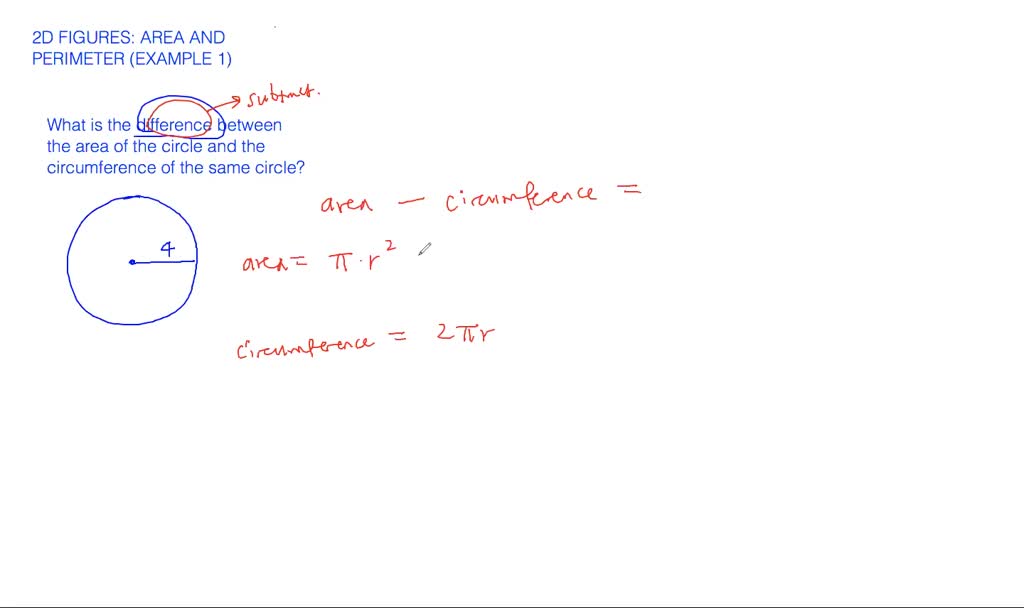 2D FIGURES: AREA AND
PERIMETER (EXAMPLE 1)
subtract.
What is the difference between
the area of the circle and the
circumference of the same circle?
area - circumference =
4
area = π · r²
circumference = 2πr